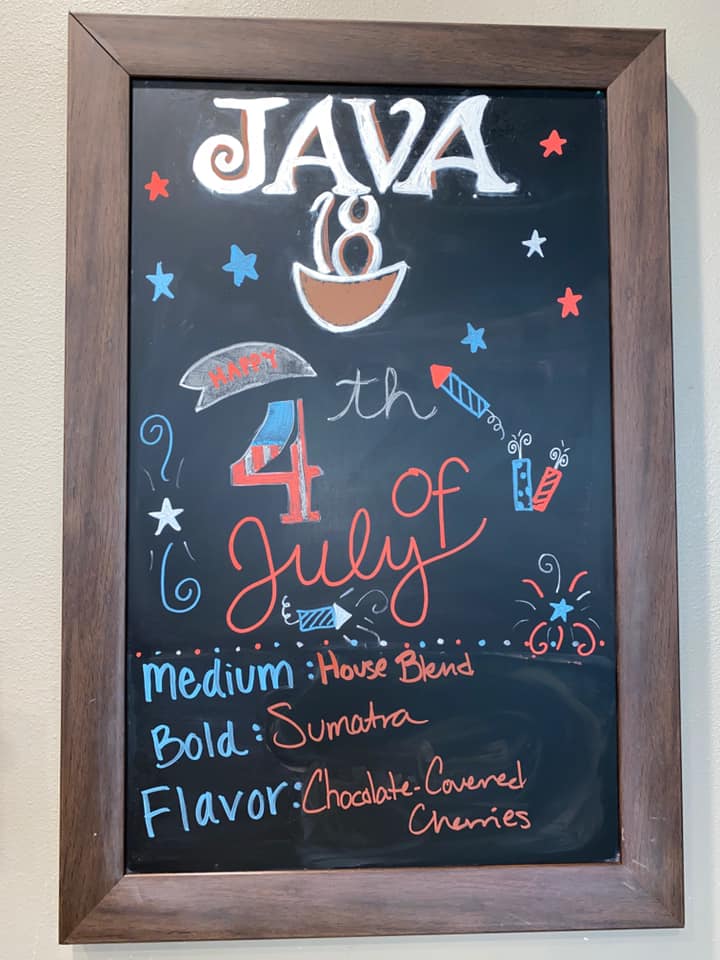 JAVA
18
HAPPY
4th
of
July
Medium: House Blend
Bold: Sumatra
Flavor: Chocolate-Covered
Cherries